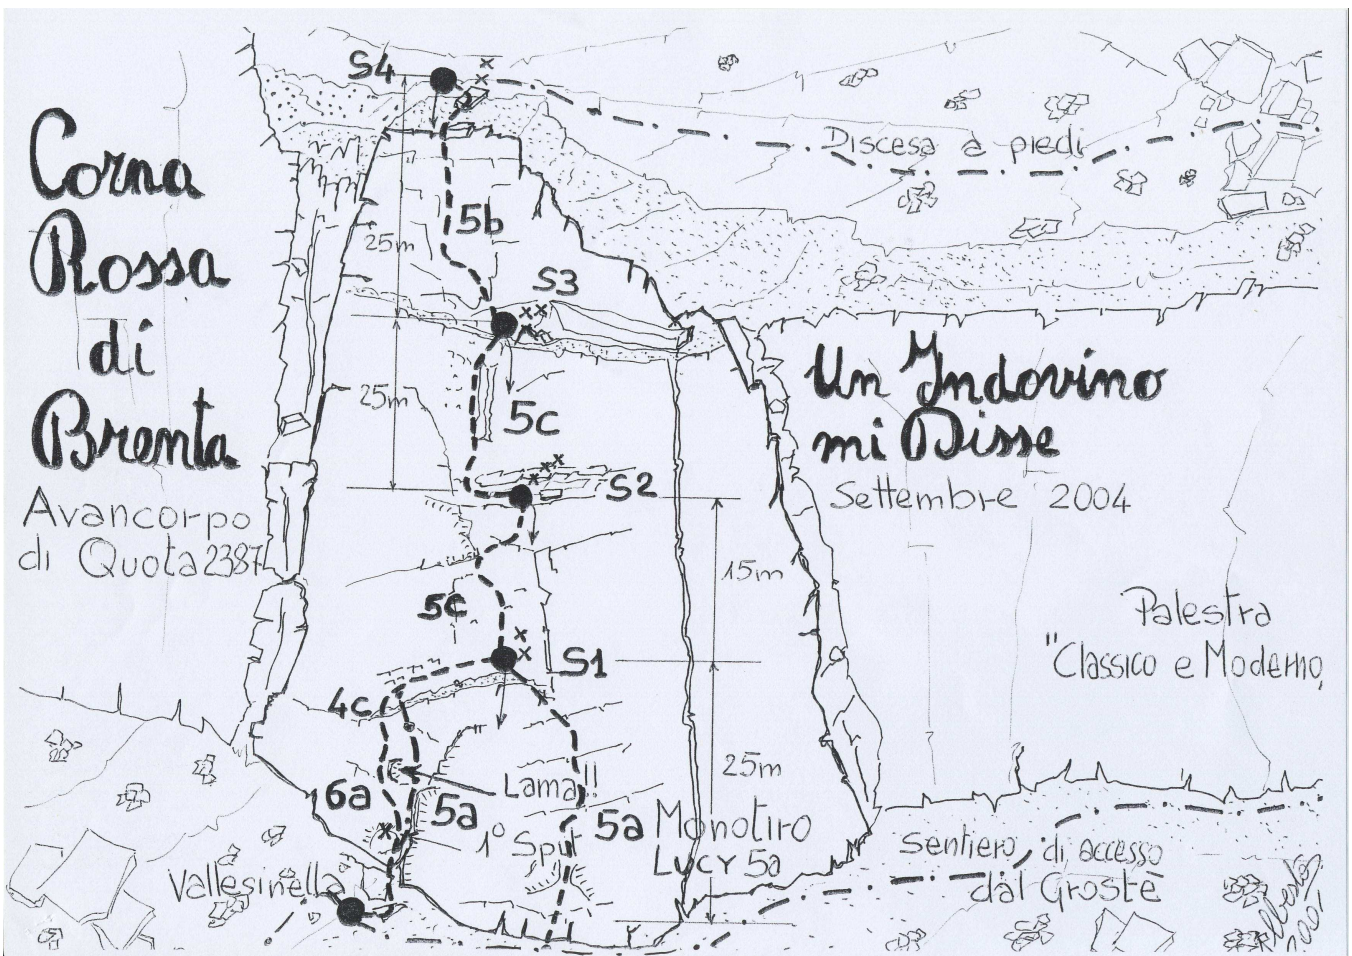 Corna
Rossa
di
Brenta
Avancorpo
di Quota 2387
S4
Discesa a piedi
5b
25m
S3
Un Indovino
mi Disse
Settembre 2004
25m
5c
S2
15m
5c
S1
Palestra
"Classico e Moderno,
4c
Lama!!
25m
6a
5a
1° Spit
5a
Monotiro
LUCY 5a
Vallesinella
Sentiero di accesso
dal Grostè